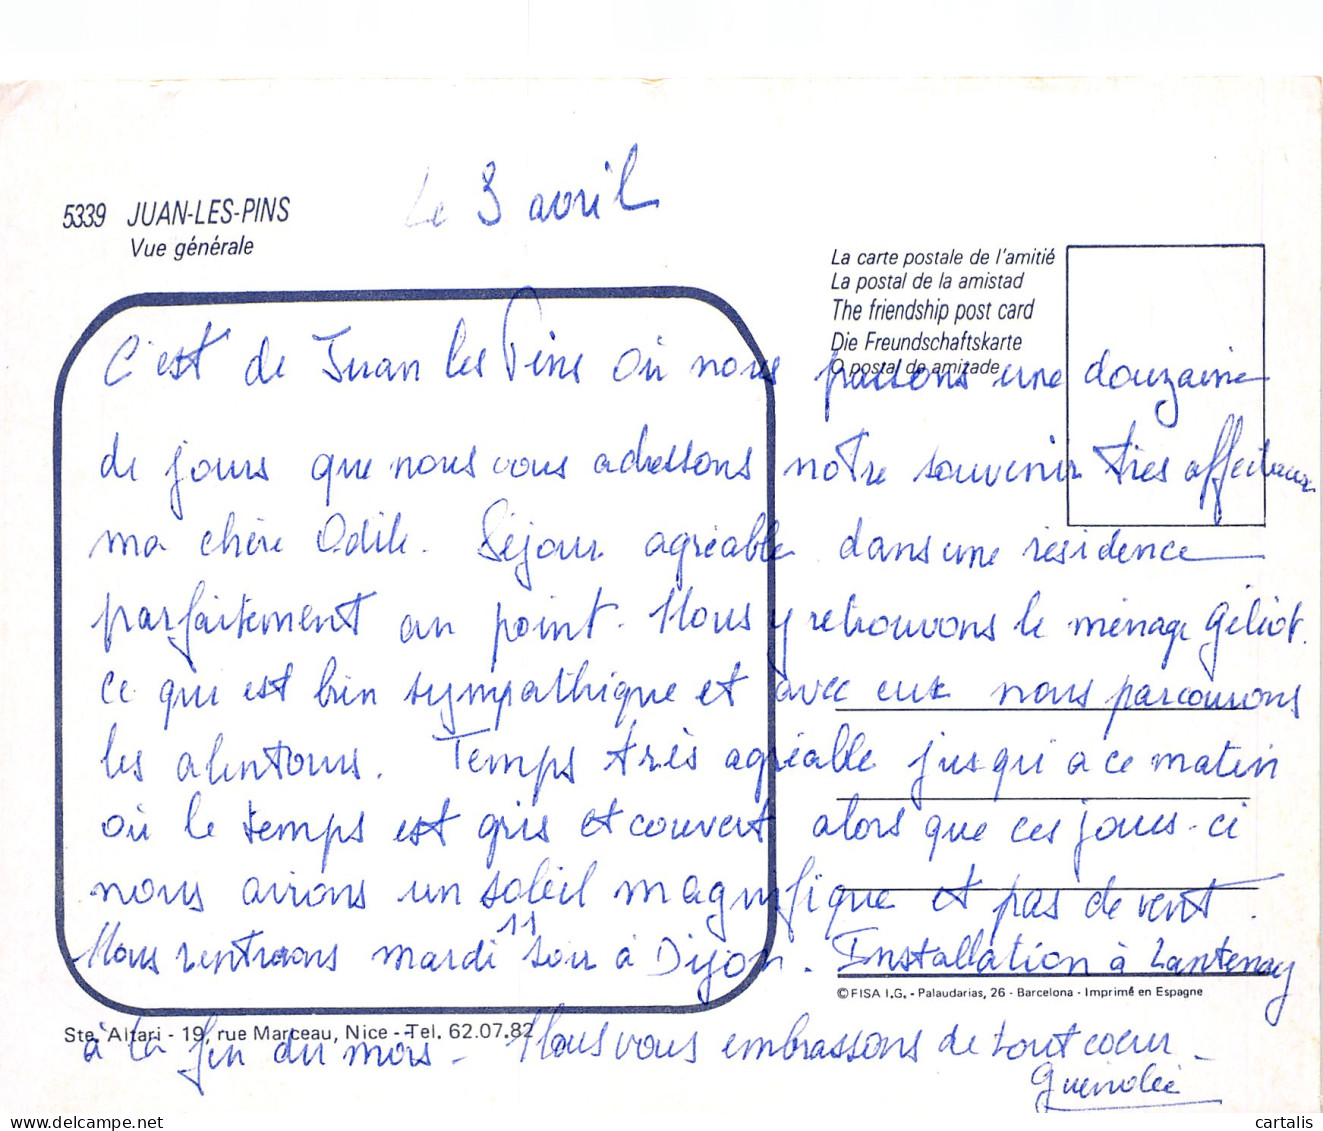 Le 3 avril
5339 JUAN-LES-PINS
Vue générale
La carte postale de l'amitié
La postal de la amistad
The friendship post card
Die Freundschaftskarte
O postal de amizade
C'est de Juan les Pins où nous passons une douzaine
de jours que nous vous adressons notre souvenir très affectueux
ma chère Odile. Séjour agréable dans une résidence
parfaitement au point. Nous y retrouvons le ménage Géliot.
ce qui est bien sympathique et avec eux nous parcourons
les alentours. Temps très agréable jusqu'à ce matin
où le temps est gris et couvert alors que ces jours-ci
nous avions un soleil magnifique et pas de vent.
Nous rentrons mardi 11 soir à Dijon. Installation à Lantenay
©FISA I.G. - Palaudarias, 26 - Barcelona - Imprimé en Espagne
Sté. Altari - 19, rue Marceau, Nice - Tel. 62.07.82
à la fin du mois - Nous vous embrassons de tout coeur -
cartalis